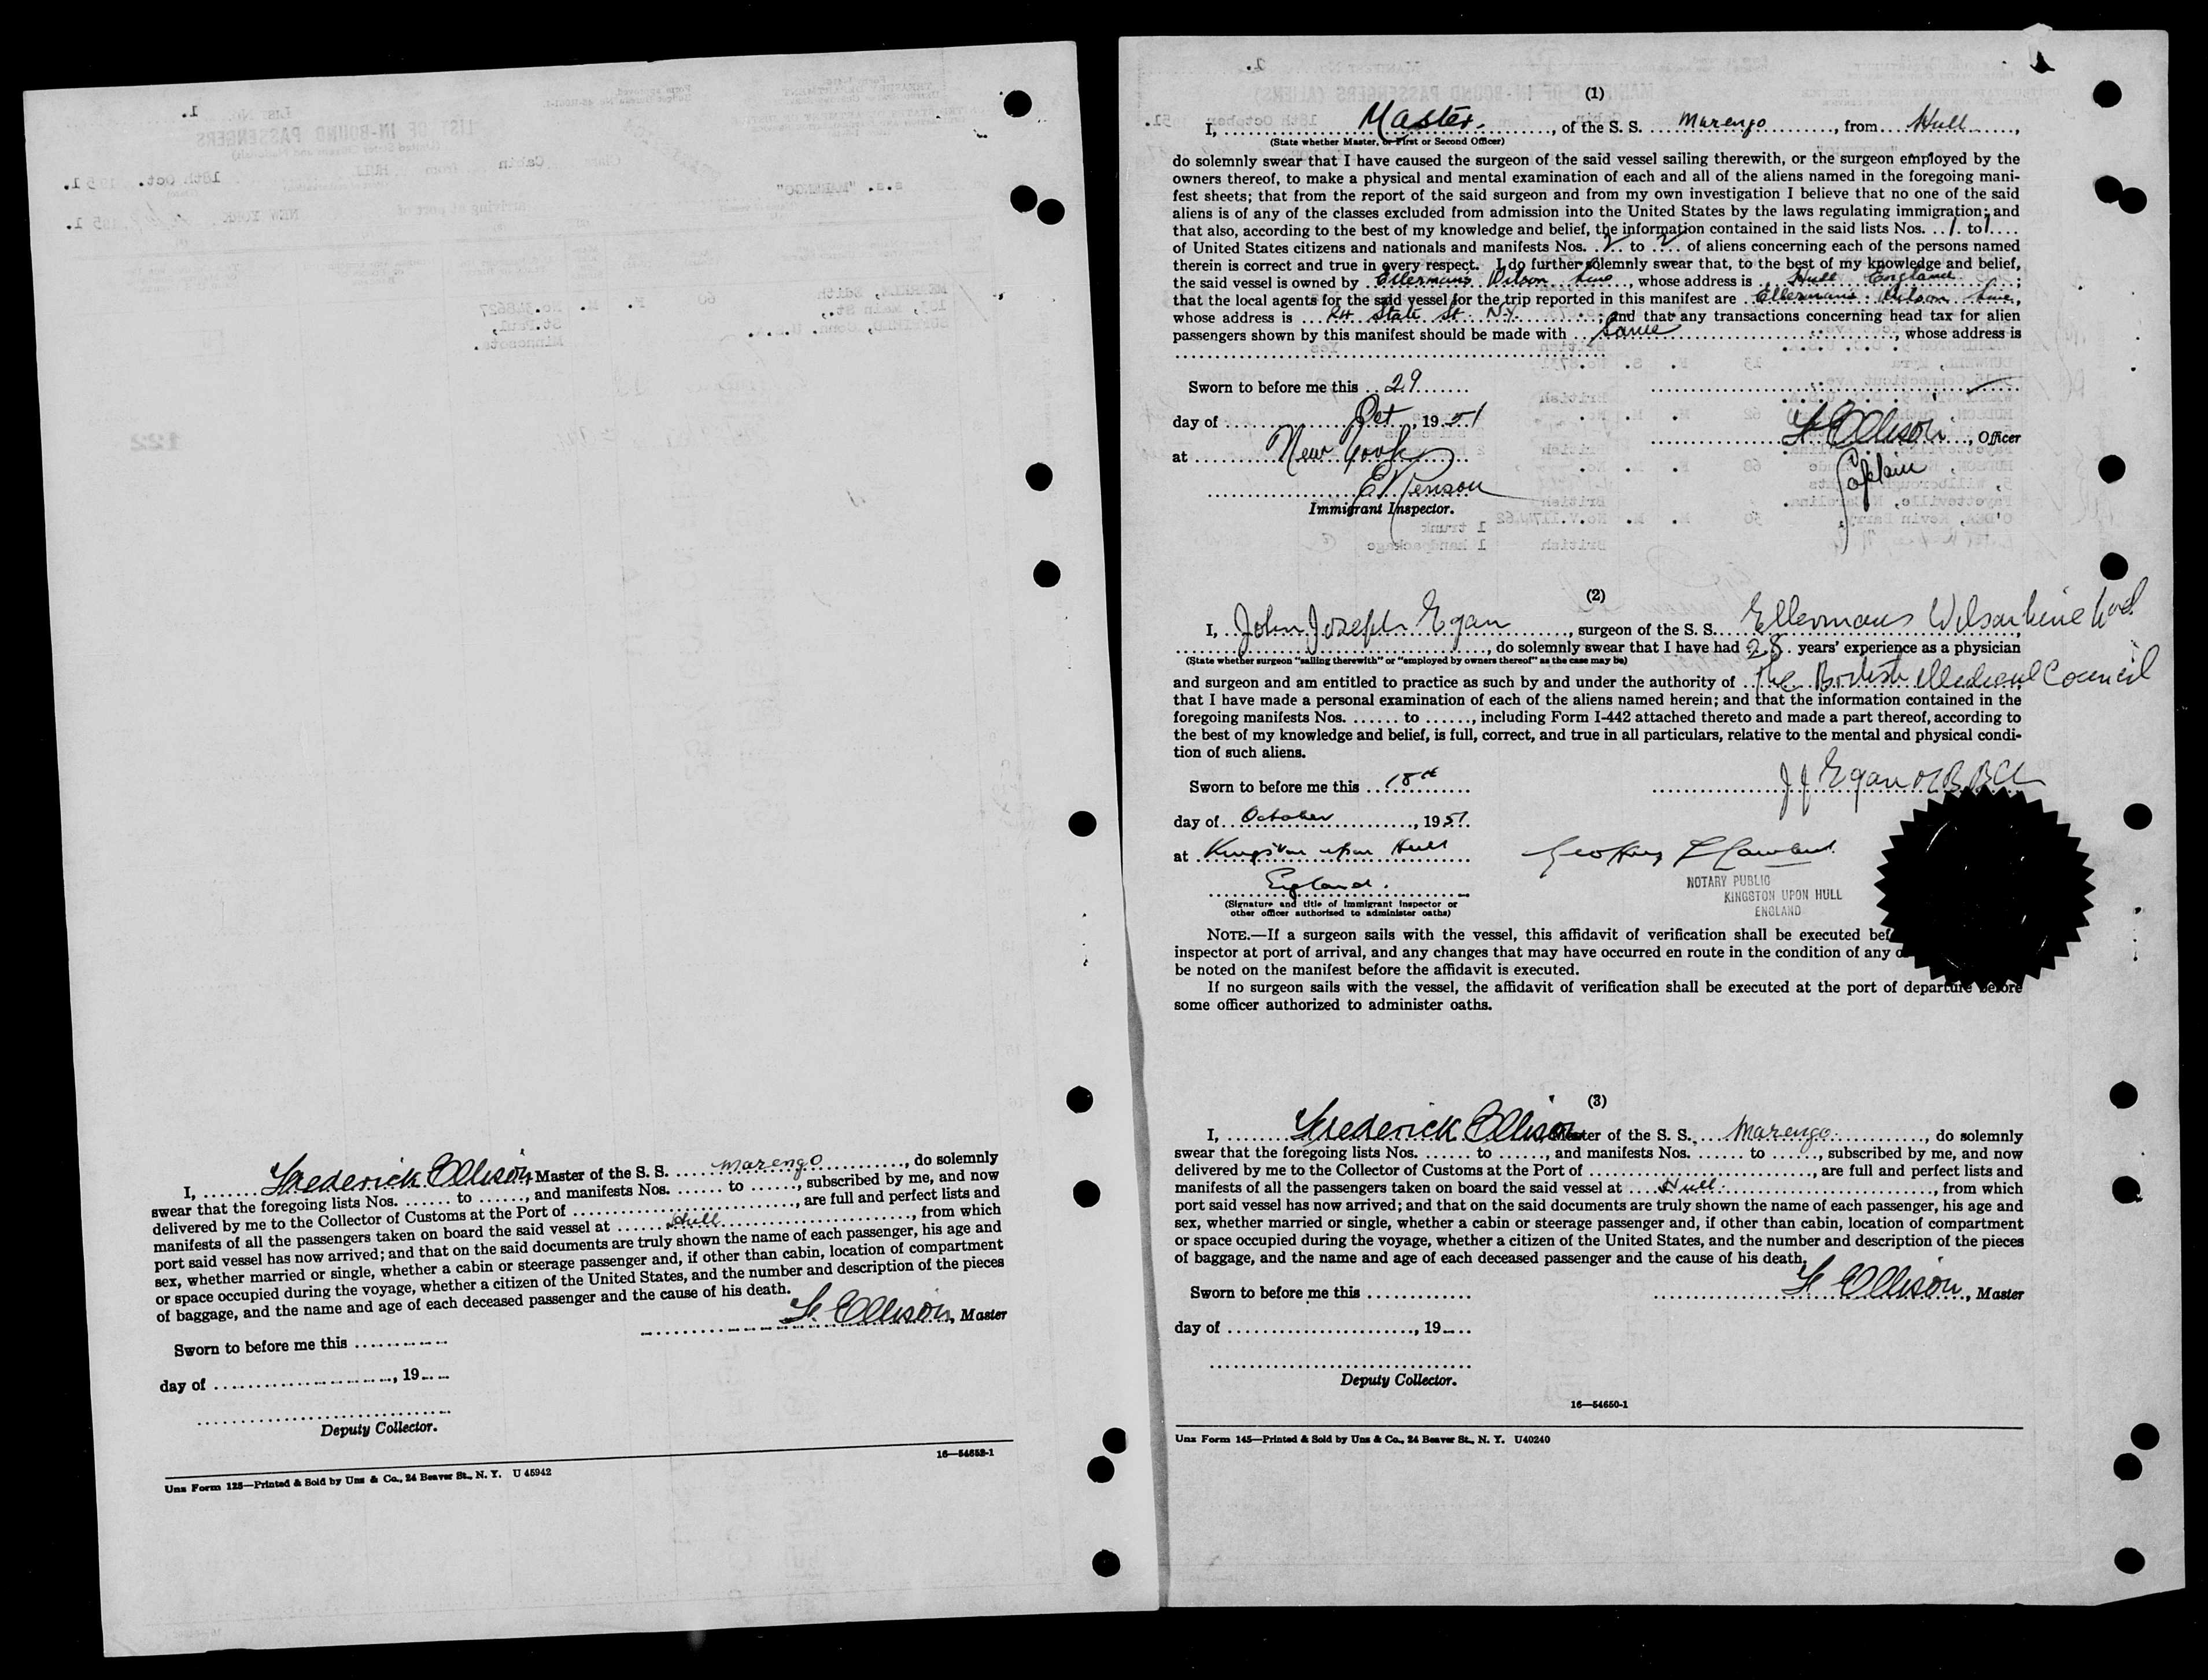 I, Frederick Ellison, Master of the S. S. Marengo, do solemnly
swear that the foregoing lists Nos. ....... to ......., and manifests Nos. ....... to ......., subscribed by me, and now
delivered by me to the Collector of Customs at the Port of ......................................, are full and perfect lists and
manifests of all the passengers taken on board the said vessel at ...... Hull ......................................, from which
port said vessel has now arrived; and that on the said documents are truly shown the name of each passenger, his age and
sex, whether married or single, whether a cabin or steerage passenger and, if other than cabin, location of compartment
or space occupied during the voyage, whether a citizen of the United States, and the number and description of the pieces
of baggage, and the name and age of each deceased passenger and the cause of his death.
F. Ellison, Master
Sworn to before me this ..............
day of ..........................., 19....
Deputy Collector.
16—54653-1
Unz Form 125—Printed & Sold by Unz & Co., 24 Beaver St., N. Y. U 45942
(1)
I, Master, of the S. S. Marengo, from Hull,
(State whether Master, or First or Second Officer)
do solemnly swear that I have caused the surgeon of the said vessel sailing therewith, or the surgeon employed by the
owners thereof, to make a physical and mental examination of each and all of the aliens named in the foregoing mani-
fest sheets; that from the report of the said surgeon and from my own investigation I believe that no one of the said
aliens is of any of the classes excluded from admission into the United States by the laws regulating immigration; and
that also, according to the best of my knowledge and belief, the information contained in the said lists Nos. 1 to 1
of United States citizens and nationals and manifests Nos. 2 to 2 of aliens concerning each of the persons named
therein is correct and true in every respect. I do further solemnly swear that, to the best of my knowledge and belief,
the said vessel is owned by Ellermans Wilson Line, whose address is Hull England;
that the local agents for the said vessel for the trip reported in this manifest are Ellermans Wilson Line,
whose address is State St. N.Y.; and that any transactions concerning head tax for alien
passengers shown by this manifest should be made with Same, whose address is
Sworn to before me this 29
day of Oct, 1951
F Ellison, Officer
at New York
Captain
Immigrant Inspector.
(2)
I, John Joseph Egan, surgeon of the S. S. Ellermans Wilson Line Ltd
, do solemnly swear that I have had 28 years' experience as a physician
(State whether surgeon "sailing therewith" or "employed by owners thereof" as the case may be)
and surgeon and am entitled to practice as such by and under the authority of The British Medical Council
that I have made a personal examination of each of the aliens named herein; and that the information contained in the
foregoing manifests Nos. ...... to ......, including Form I-442 attached thereto and made a part thereof, according to
the best of my knowledge and belief, is full, correct, and true in all particulars, relative to the mental and physical condi-
tion of such aliens.
Sworn to before me this 18th
J J Egan
day of October, 1951
at Kingston upon Hull
NOTARY PUBLIC
KINGSTON UPON HULL
ENGLAND
England.
(Signature and title of Immigrant Inspector or
other officer authorized to administer oaths)
NOTE.—If a surgeon sails with the vessel, this affidavit of verification shall be executed bef
inspector at port of arrival, and any changes that may have occurred en route in the condition of any
be noted on the manifest before the affidavit is executed.
If no surgeon sails with the vessel, the affidavit of verification shall be executed at the port of departure before
some officer authorized to administer oaths.
(3)
I, Frederick Ellison, Master of the S. S. Marengo, do solemnly
swear that the foregoing lists Nos. ....... to ......, and manifests Nos. ....... to ......, subscribed by me, and now
delivered by me to the Collector of Customs at the Port of ......................................, are full and perfect lists and
manifests of all the passengers taken on board the said vessel at .... Hull ......................................, from which
port said vessel has now arrived; and that on the said documents are truly shown the name of each passenger, his age and
sex, whether married or single, whether a cabin or steerage passenger and, if other than cabin, location of compartment
or space occupied during the voyage, whether a citizen of the United States, and the number and description of the pieces
of baggage, and the name and age of each deceased passenger and the cause of his death.
Sworn to before me this .............
F. Ellison, Master
day of ..........................., 19....
Deputy Collector.
16—54650-1
Unz Form 145—Printed & Sold by Unz & Co., 24 Beaver St., N. Y. U40240